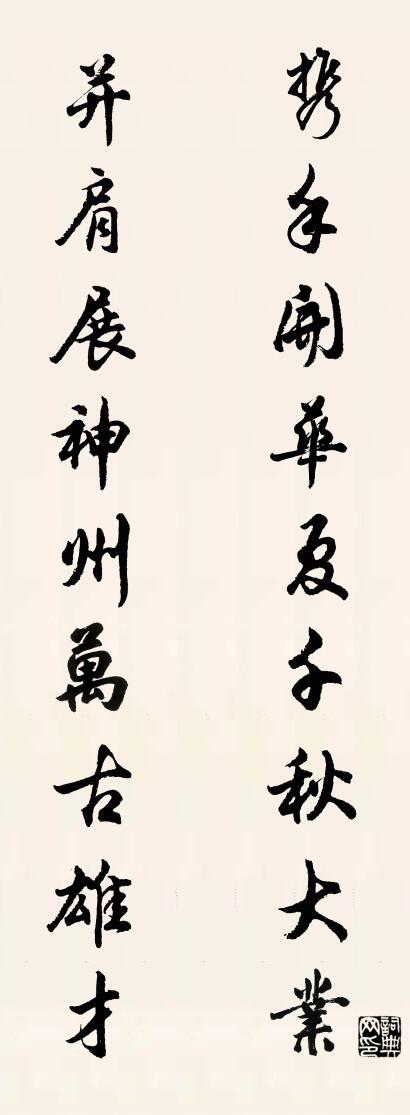 携手開華夏千秋大業
并肩展神州萬古雄才
詞典网印